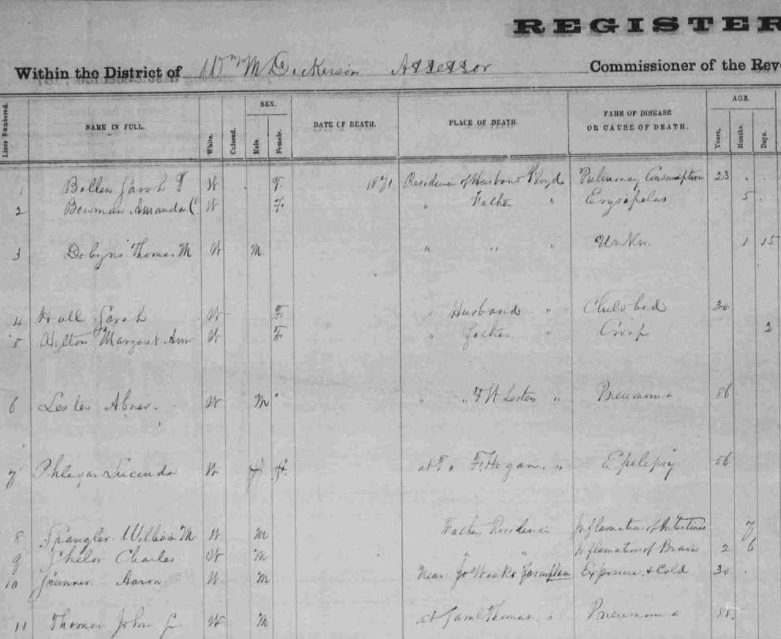 REGISTER
Within the District of Wm M Dickerson Assessor Commissioner of the Reve
Lines Numbered. NAME IN FULL. White. Colored. SEX. Male. Female. DATE OF DEATH. PLACE OF DEATH. NAME OF DISEASE OR CAUSE OF DEATH. AGE. Years. Months. Days.
1 Sarah W F. 1871 Residence of Husband Floyd Pulmonary Consumption 23
2 Bowman Amanda C W F. " Father " Erysipelas 5
3 Dobyns Thomas M W M. " " " UnKn. 1 15
4 Hall Sarah W F " Husband " Child bed 30
5 Hylton Margaret Ann W F " Father " Croup 2
6 Lester Abner. W M " " Lester " Pneumonia 86
7 Phlegar Lucinda W f. at Hogan " Epilepsy 56
8 Spangler William M W M Father Residence Inflamation of Intestines 7
9 Shelor Charles W M " " Inflamation of Brain 2 6
10 Aaron W M Near Exposure & Cold 30
11 Thomas John W M at Saml Thomas Pneumonia